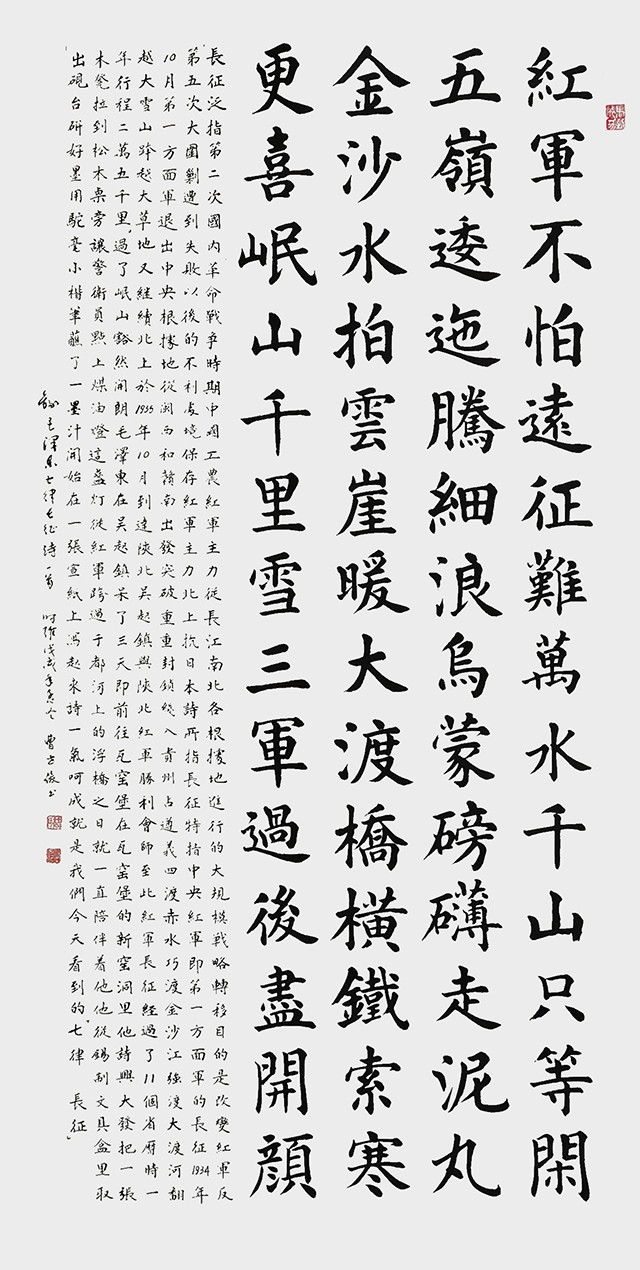 紅軍不怕遠征難萬水千山只等閑
五嶺逶迤騰細浪烏蒙磅礴走泥丸
金沙水拍雲崖暖大渡橋橫鐵索寒
更喜岷山千里雪三軍過後盡開顔
長征泛指第二次國内革命戰爭時期中國工農紅軍主力從長江南北各根據地進行的大規模戰略轉移目的是改變紅軍反
第五次大圍剿遭到失敗以後的不利處境保存紅軍主力北上抗日本詩所指長征特指中央紅軍即第一方面軍的長征1934年
10月第一方面軍退出中央根據地從閩西和贛南出發突破重重封鎖綫入貴州占遵義四渡赤水巧渡金沙江強渡大渡河翻
越大雪山跨越大草地又繼續北上於1935年10月到達陝北吴起鎮與陝北紅軍勝利會師至此紅軍長征經過了11個省歷時一
年行程二萬五千里過了岷山豁然開朗毛澤東在吴起鎮呆了三天即前往瓦窑堡在瓦窑堡的新窑洞里他詩興大發把一張
木凳拉到松木桌旁讓警衛員點上煤油燈這盞灯從紅軍跨過于都河上的浮橋之日就一直陪伴着他他從錫制文具盒里取
出硯台研好墨用駝毫小楷筆蘸了一墨汁開始在一張宣紙上寫起來詩一氣呵成就是我們今天看到的七律 長征
錄毛澤東七律長征詩一首 時維戊戌年 曹 書